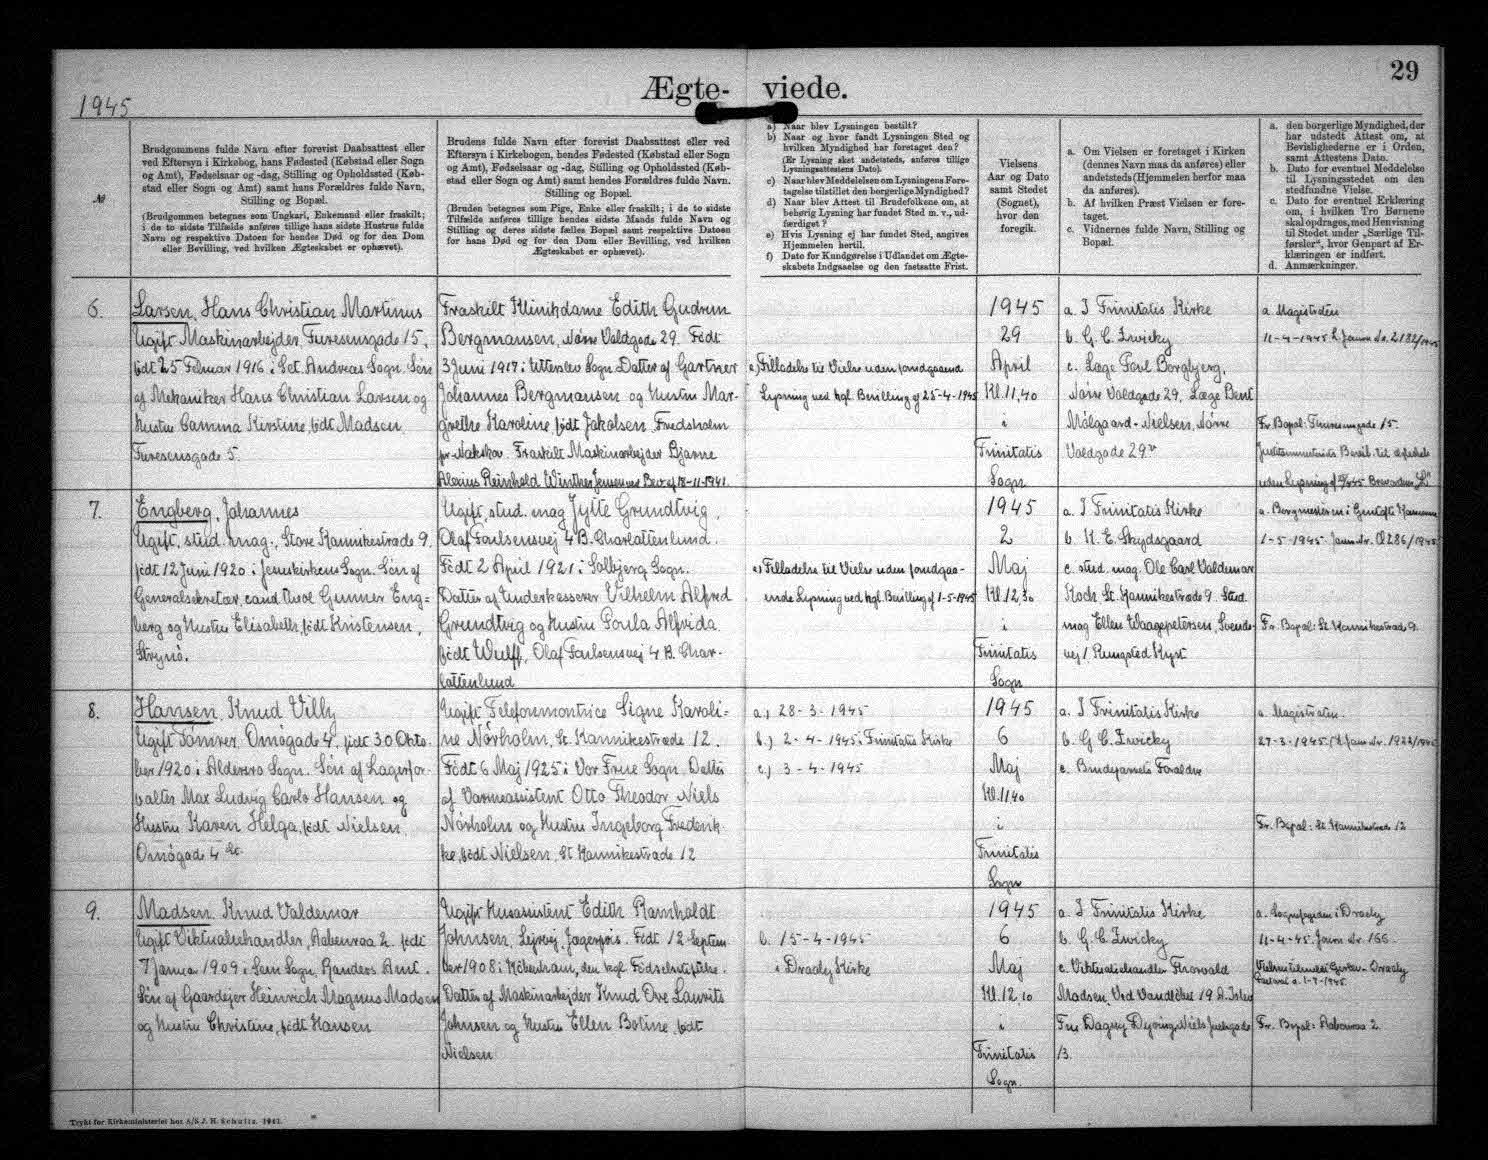 29
Ægte- viede.
1945
№
Brudgommens fulde Navn efter forevist Daabsattest eller
ved Eftersyn i Kirkebog, hans Fødested (Købstad eller Sogn
og Amt), Fødselsaar og -dag, Stilling og Opholdssted (Køb-
stad eller Sogn og Amt) samt hans Forældres fulde Navn,
Stilling og Bopæl.
(Brudgommen betegnes som Ungkarl, Enkemand eller fraskilt;
i de to sidste Tilfælde anføres tillige hans sidste Hustrus fulde
Navn og respektive Datoen for hendes Død og for den Dom
eller Bevilling, ved hvilken Ægteskabet er ophævet).
Brudens fulde Navn efter forevist Daabsattest eller ved
Eftersyn i Kirkebogen, hendes Fødested (Købstad eller Sogn
og Amt), Fødselsaar og -dag, Stilling og Opholdssted (Køb-
stad eller Sogn og Amt) samt hendes Forældres fulde Navn.
Stilling og Bopæl.
(Bruden betegnes som Pige, Enke eller fraskilt; i de to sidste
Tilfælde anføres tillige hendes sidste Mands fulde Navn og
Stilling og deres sidste fælles Bopæl samt respektive Datoen
for hans Død og for den Dom eller Bevilling, ved hvilken
Ægteskabet er ophævet).
a) Naar blev Lysningen bestilt?
b) Naar og hvor fandt Lysningen Sted og
hvilken Myndighed har foretaget den?
(Er Lysning sket andetsteds, anføres tillige
Lysningsattestens Dato).
c) Naar blev Meddelelsen om Lysningens Fore-
tagelse tilstillet den borgerlige Myndighed?
d) Naar blev Attest til Brudefolkene om, at
behørig Lysning har fundet Sted m. v., ud-
færdiget?
e) Hvis Lysning ej har fundet Sted, angives
Hjemmelen hertil.
f) Dato for Kundgørelse i Udlandet om Ægte-
skabets Indgaaelse og den fastsatte Frist.
Vielsens
Aar og Dato
samt Stedet
(Sognet),
hvor den
foregik.
a. Om Vielsen er foretaget i Kirken
(dennes Navn maa da anføres) eller
andetsteds (Hjemmelen herfor maa
da anføres).
b. Af hvilken Præst Vielsen er fore-
taget.
c. Vidnernes fulde Navn, Stilling og
Bopæl.
a. den borgerlige Myndighed, der
har udstedt Attest om, at
Bevislighederne er i Orden,
samt Attestens Dato.
b. Dato for eventuel Meddelelse
til Lysningsstedet om den
stedfundne Vielse.
c. Dato for eventuel Erklæring
om, i hvilken Tro Børnene
skal opdrages, med Henvisning
til Stedet under „Særlige Til-
førsler“, hvor Genpart af Er-
klæringen er indført.
d. Anmærkninger.
6.
Larsen, Hans Christian Martinus
Ugift Maskinarbejder, Furesøgade 15,
født 25 Februar 1916 i Sct. Andreas Sogn. Søn
af Mekaniker Hans Christian Larsen og
Hustru Camma Kirstine, født Madsen
Furesøgade 5.
Fraskilt Klinikdame Edith Gudrun
Bergmansen, Nørre Voldgade 29. Født
3 Juni 1917 i Utterslev Sogn. Datter af Gartner
Johannes Bergmansen og Hustru Mar-
grethe Karoline, født Jakobsen, Fredsholm
pr Nakskov. Fraskilt Maskinarbejder Bjarne
Alexius Reinhold Winther Jensen ved Bev. af 18-11-1941.
e) Tilladelse til Vielse uden forudgaaende
Lysning ved kgl. Bevilling af 25-4-1945
1945
29
April
Kl. 11,40
i
Trinitatis
Sogn
a. I Trinitatis Kirke
b. G. C. Zwicky
c. Læge Poul Borgbjerg,
Nørre Voldgade 29, Læge Bent
Mølgaard-Nielsen, Nørre
Voldgade 29
a. Magistraten
11-4-1945 Journ. Nr. 2182/1945
Fr. Bopæl: Furesøgade 15.
7.
Engberg, Johannes
Ugift, stud. mag., Store Kannikestræde 9,
født 12 Juni 1920 i Jesuskirkens Sogn. Søn af
Generalsekretær, cand. theol. Gunner Eng-
berg og Hustru Elisabeth, født Kristensen,
Strynø.
Ugift, stud. mag Jytte Grundtvig,
Olaf Poulsensvej 4 B. Charlottenlund.
Født 2 April 1921 i Solbjerg Sogn.
Datter af Underkasserer Vilhelm Alfred
Grundtvig og Hustru Poula Alfrida
født Wulff, Olaf Poulsensvej 4 B. Char-
lottenlund
e) Tilladelse til Vielse uden forudgaa-
ende Lysning ved kgl. Bevilling af 1-5-1945
1945
2
Maj
Kl. 12,30
i
Trinitatis
Sogn
a. I Trinitatis Kirke
b. H. E. Skydsgaard
c. stud. mag. Ole Carl Valdemar
Koch St. Kannikestræde 9. Stud.
mag Ellen Waagepetersen, Svends-
vej 1 Rungsted Kyst
a. Borgmesteren i Gentofte Kommune
1-5-1945 Journ. Nr. 286/1945
Fr. Bopæl: St. Kannikestræde 9.
8.
Hansen, Knud Villy
Ugift Tømrer, Omøgade 4, født 30 Okto-
ber 1920 i Aldersro Sogn. Søn af Lagerfor-
valter Max Ludvig Carlo Hansen og
Hustru Karen Helga, født Nielsen,
Omøgade 4
Ugift Telefonmontrice Signe Karoli-
ne Nörholm, St. Kannikestræde 12.
Født 6 Maj 1925 i Vor Frue Sogn. Datter
af Varmeassistent Otto Theodor Niels
Nörholm og Hustru Ingeborg Frederik-
ke, født Nielsen, St. Kannikestræde 12
a.) 28-3-1945
b.) 2-4-1945 i Trinitatis Kirke
c.) 3-4-1945
1945
6
Maj
Kl. 11,40
i
Trinitatis
Sogn
a. I Trinitatis Kirke
b. G. C. Zwicky
c. Brudeparrets Forældre
a. Magistraten.
27-3-1945 Journ. Nr. 1922/1945
Fr. Bopæl: St. Kannikestræde 12
9.
Madsen, Knud Valdemar
Ugift Viktualiehandler, Aabenraa 2. født
7 Januar 1909 i Lem Sogn, Randers Amt.
Søn af Gaardejer Heinrich Magnus Madsen
og Hustru Christine, født Hansen
Ugift Husassistent Edith Ramholdt
Johnsen, Lejrevej, Jægerspris. Født 12 Septem-
ber 1908 i København, den kgl. Fødselsstiftelse.
Datter af Maskinarbejder Knud Ove Laurits
Johnsen og Hustru Ellen Boline, født
Nielsen
b. 15-4-1945
i Draaby Kirke
1945
6
Maj
Kl. 12,10
i
Trinitatis
Sogn.
a. I Trinitatis Kirke
b. G. C. Zwicky
c. Viktualiehandler Thorvald
Madsen, Ved Vandløbet 19
Fru Dagny Dyring, Niels Juelsgade
13.
a. Sognefogden i Draaby
11-4-45. Journ. Nr. 166.
Fr. Bopæl: Aabenraa 2.
Trykt for Kirkeministeriet hos A/S J. H. Schultz. 1941.